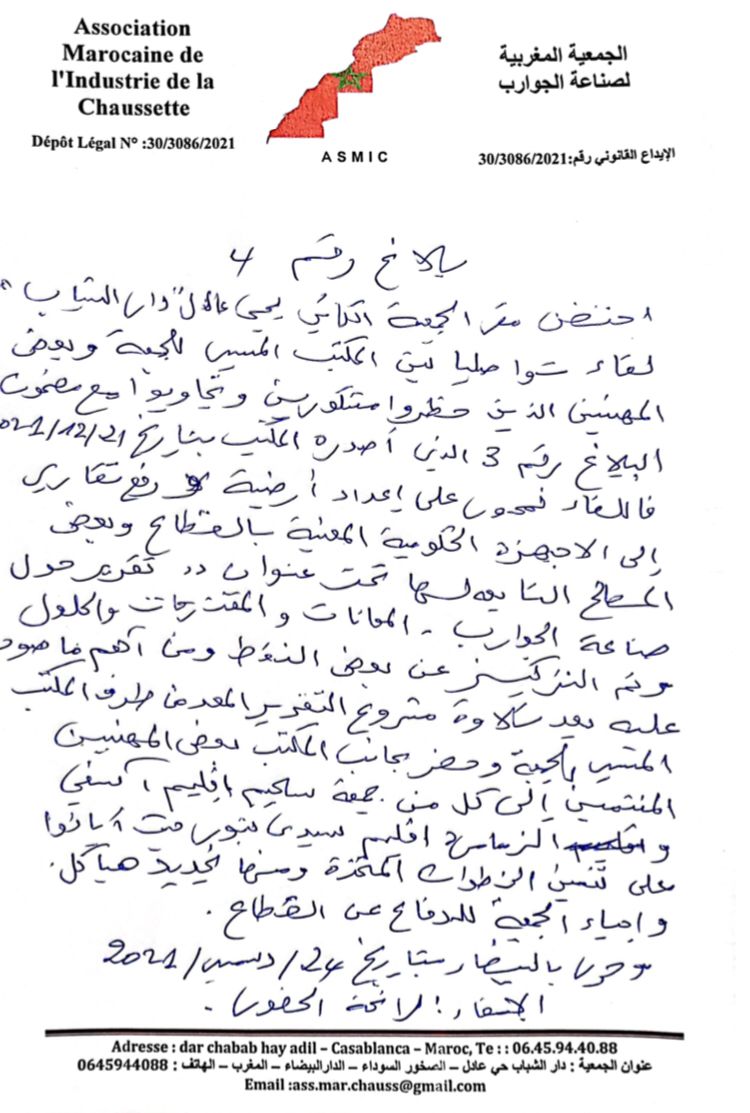 Association
Marocaine de
l'Industrie de la
Chaussette
Dépôt Légal N° :30/3086/2021
ASMIC
الجمعية المغربية
لصناعة الجوارب
الإيداع القانوني رقم:30/3086/2021
بلاغ رقم 4
احتضن مقر الجمعية الكائن بحي عادل "دار الشباب"
لقاء تواصليا بين المكتب المسير للجمعية وبعض
المهنيين الذين حظروا مشكورين وتجاوبوا مع مضمون
البلاغ رقم 3 الذي أصدره المكتب بتاريخ 2021/12/21
فاللقاء تمحور على إعداد أرضية رفع تقارير
إلى الاجهزة الحكومية المعنية بالقطاع وبعض
المصالح التابعة لها تحت عنوان ,, تقرير حول
صناعة الجوارب - المعانات والمقترحات والحلول
وتم التركيز عن بعض النقط ومن أهم ما
عليه بعد تلاوة مشروع التقرير المعد من طرف المكتب
المسير للجمعية وحضر بجانب المكتب بعض المهنيين
المنتمين إلى كل من جمعة سحيم اقليم اسفي
و الزمامرة اقليم سيدي بنور حيت
على الخطوات المتخذة ومنها تجديد هياكل.
وإحياء الجمعية للدفاع عن القطاع.
وحرر بالبيضاء بتاريخ 24/دسمبر/2021
لائحة الحضور.
Adresse : dar chabab hay adil – Casablanca – Maroc, Te : : 06.45.94.40.88
عنوان الجمعية : دار الشباب حي عادل – الصخور السوداء – الدارالبيضاء – المغرب – الهاتف : 0645944088
Email :ass.mar.chauss@gmail.com